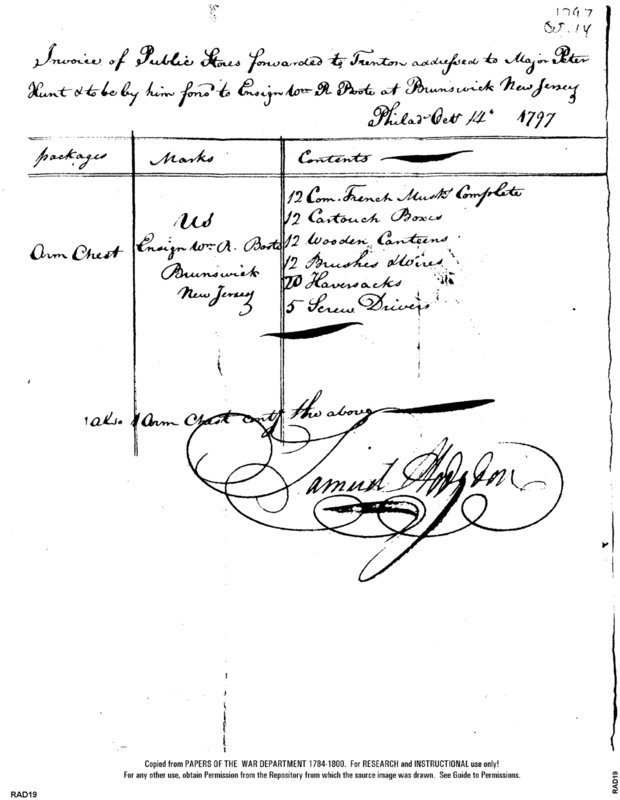 1797
Oct. 14
Invoice of Public Stores forwarded to Trenton addressed to Major Peter
Hunt & to be by him ford to Ensign Wm R. Boote at Brunswick New Jersey
Philada Octr 14th 1797
packages Marks Contents
12 Com. French Muskts Complete
US 12 Cartouch Boxes
Arm Chest Ensign Wm R. Boote 12 Wooden Canteens
Brunswick 12 Brushes & Wires
New Jersey 20 Haversacks
5 Screw Drivers
also 1 Arm Chest contg the above
Samuel Hodgdon
Copied from PAPERS OF THE WAR DEPARTMENT 1784-1800. For RESEARCH and INSTRUCTIONAL use only!
For any other use, obtain Permission from the Repository from which the source image was drawn. See Guide to Permissions.
RAD19
RAD19